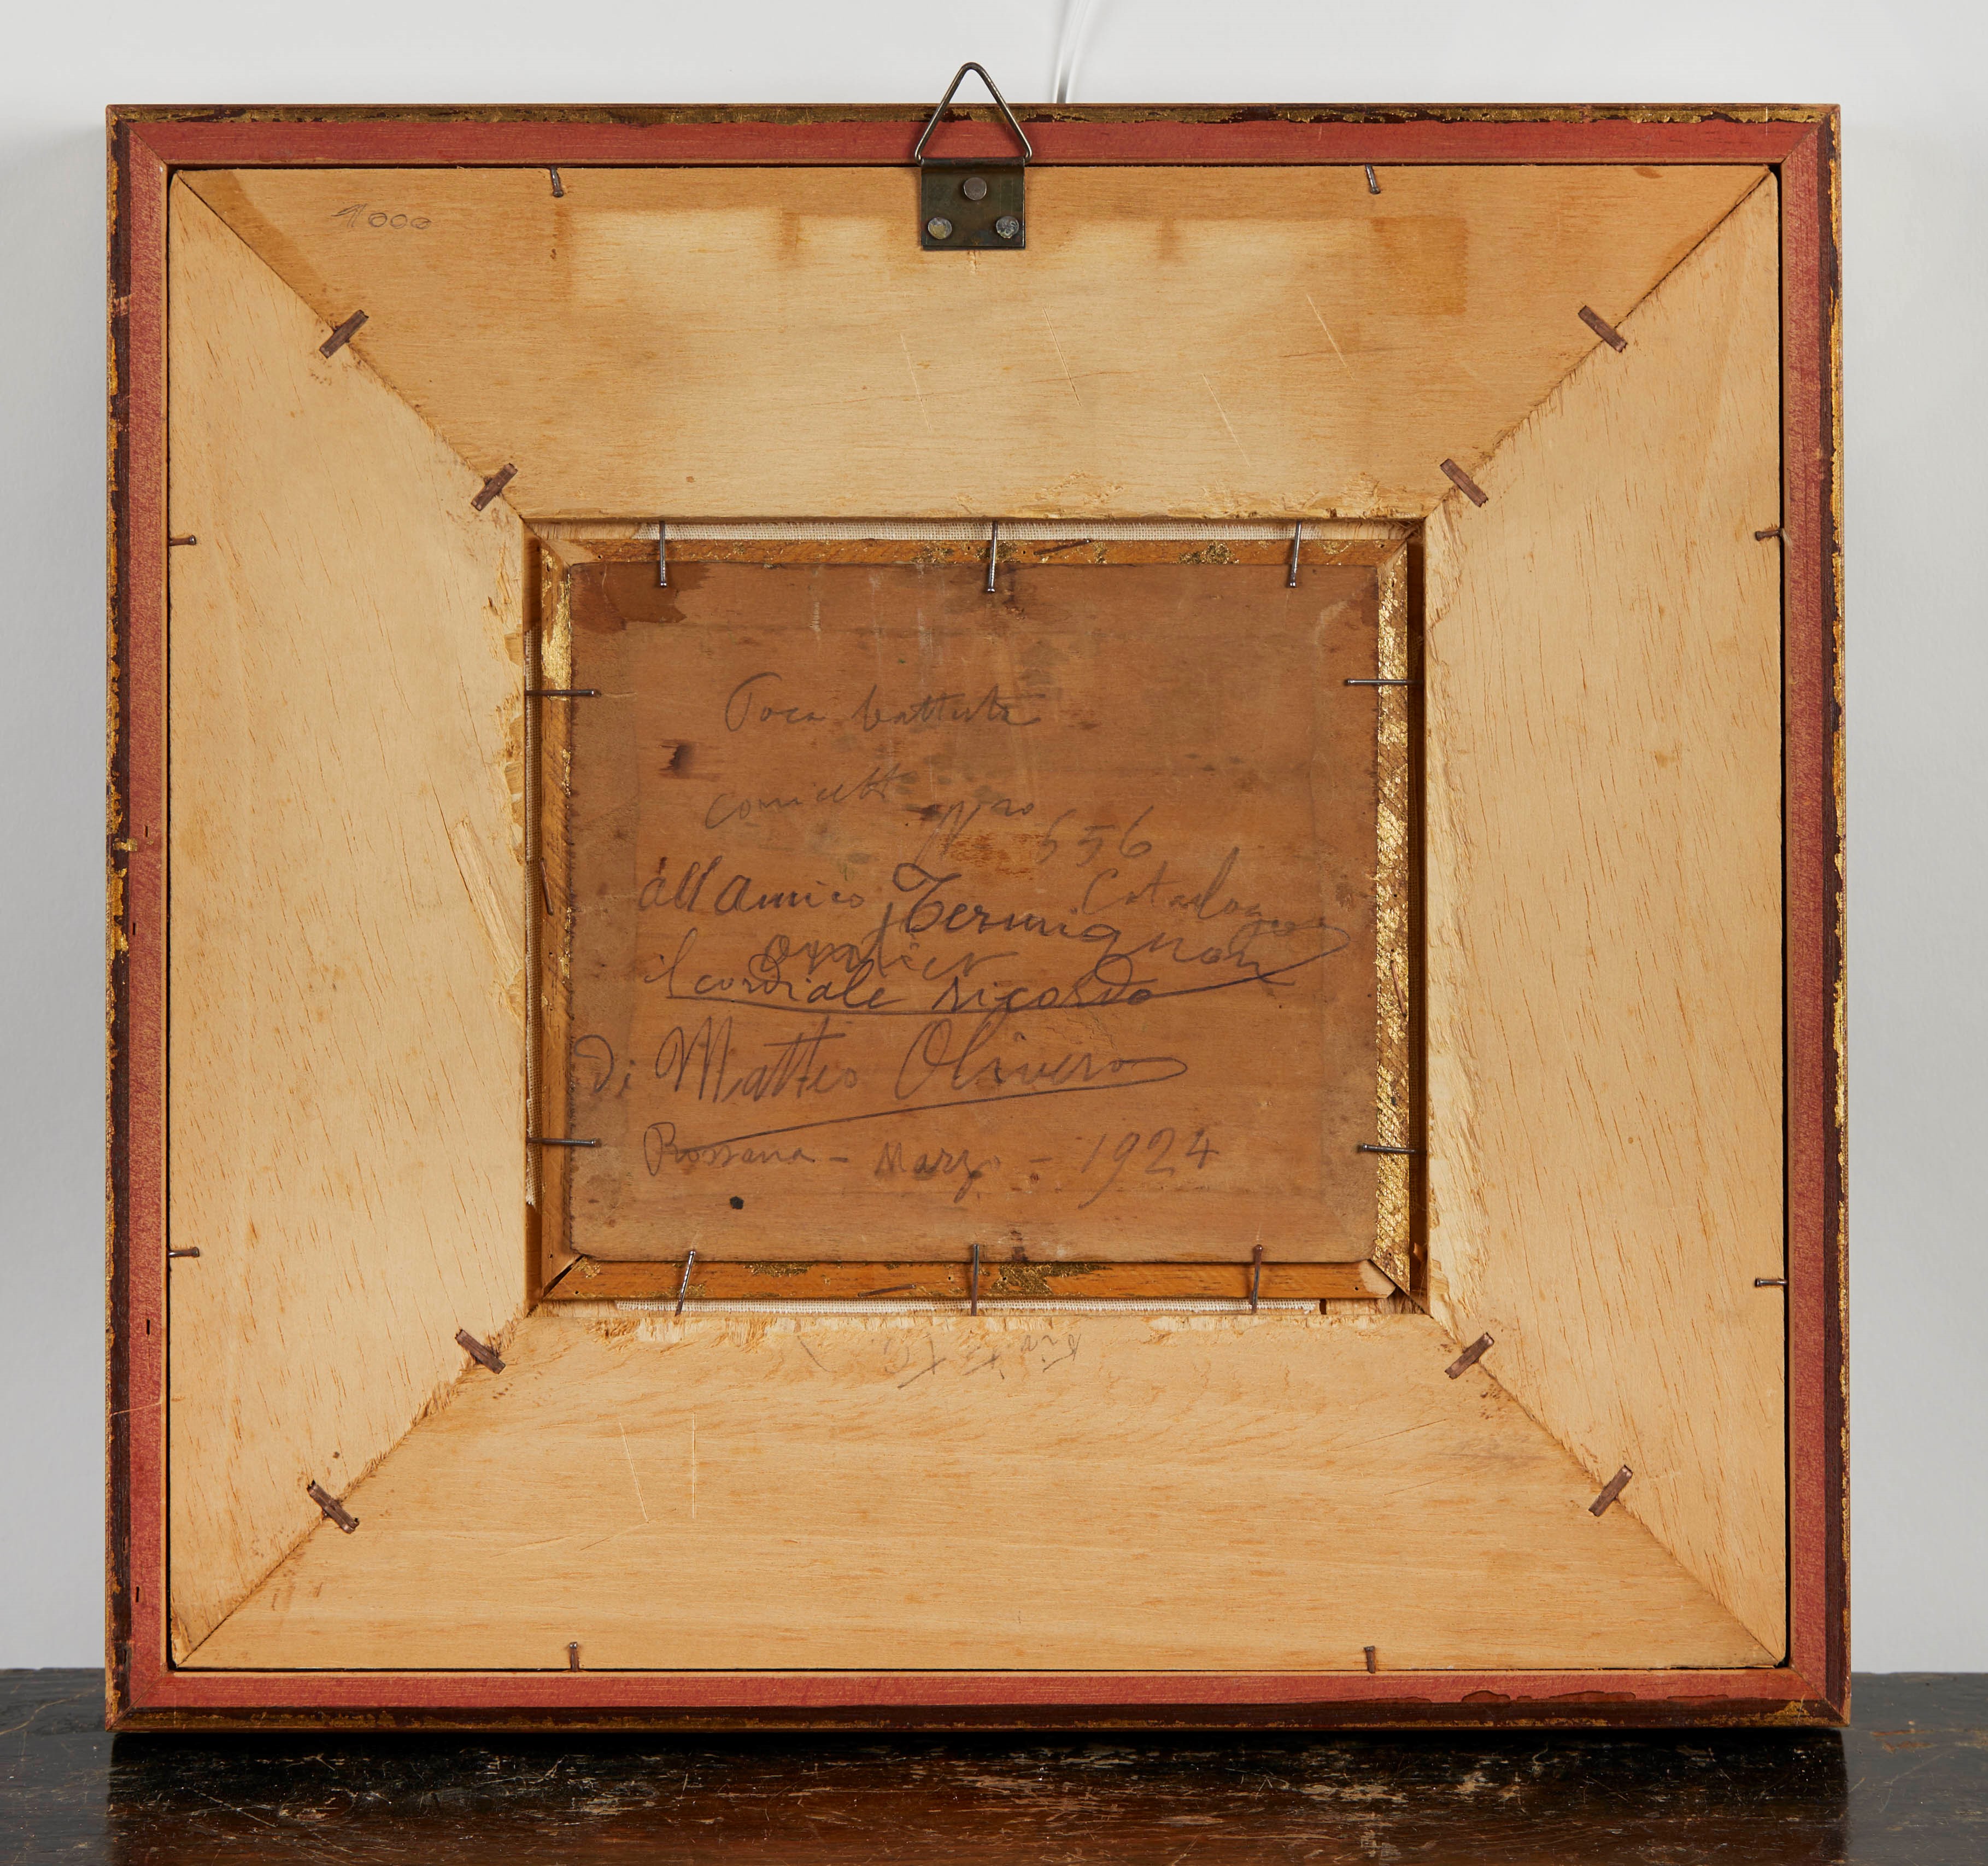 1000
Poca battuta
N ro 656
all'Amico Termignon
Catalogo
il cordiale ricordo
di Matteo Olivero
Rossana - Marzo - 1924